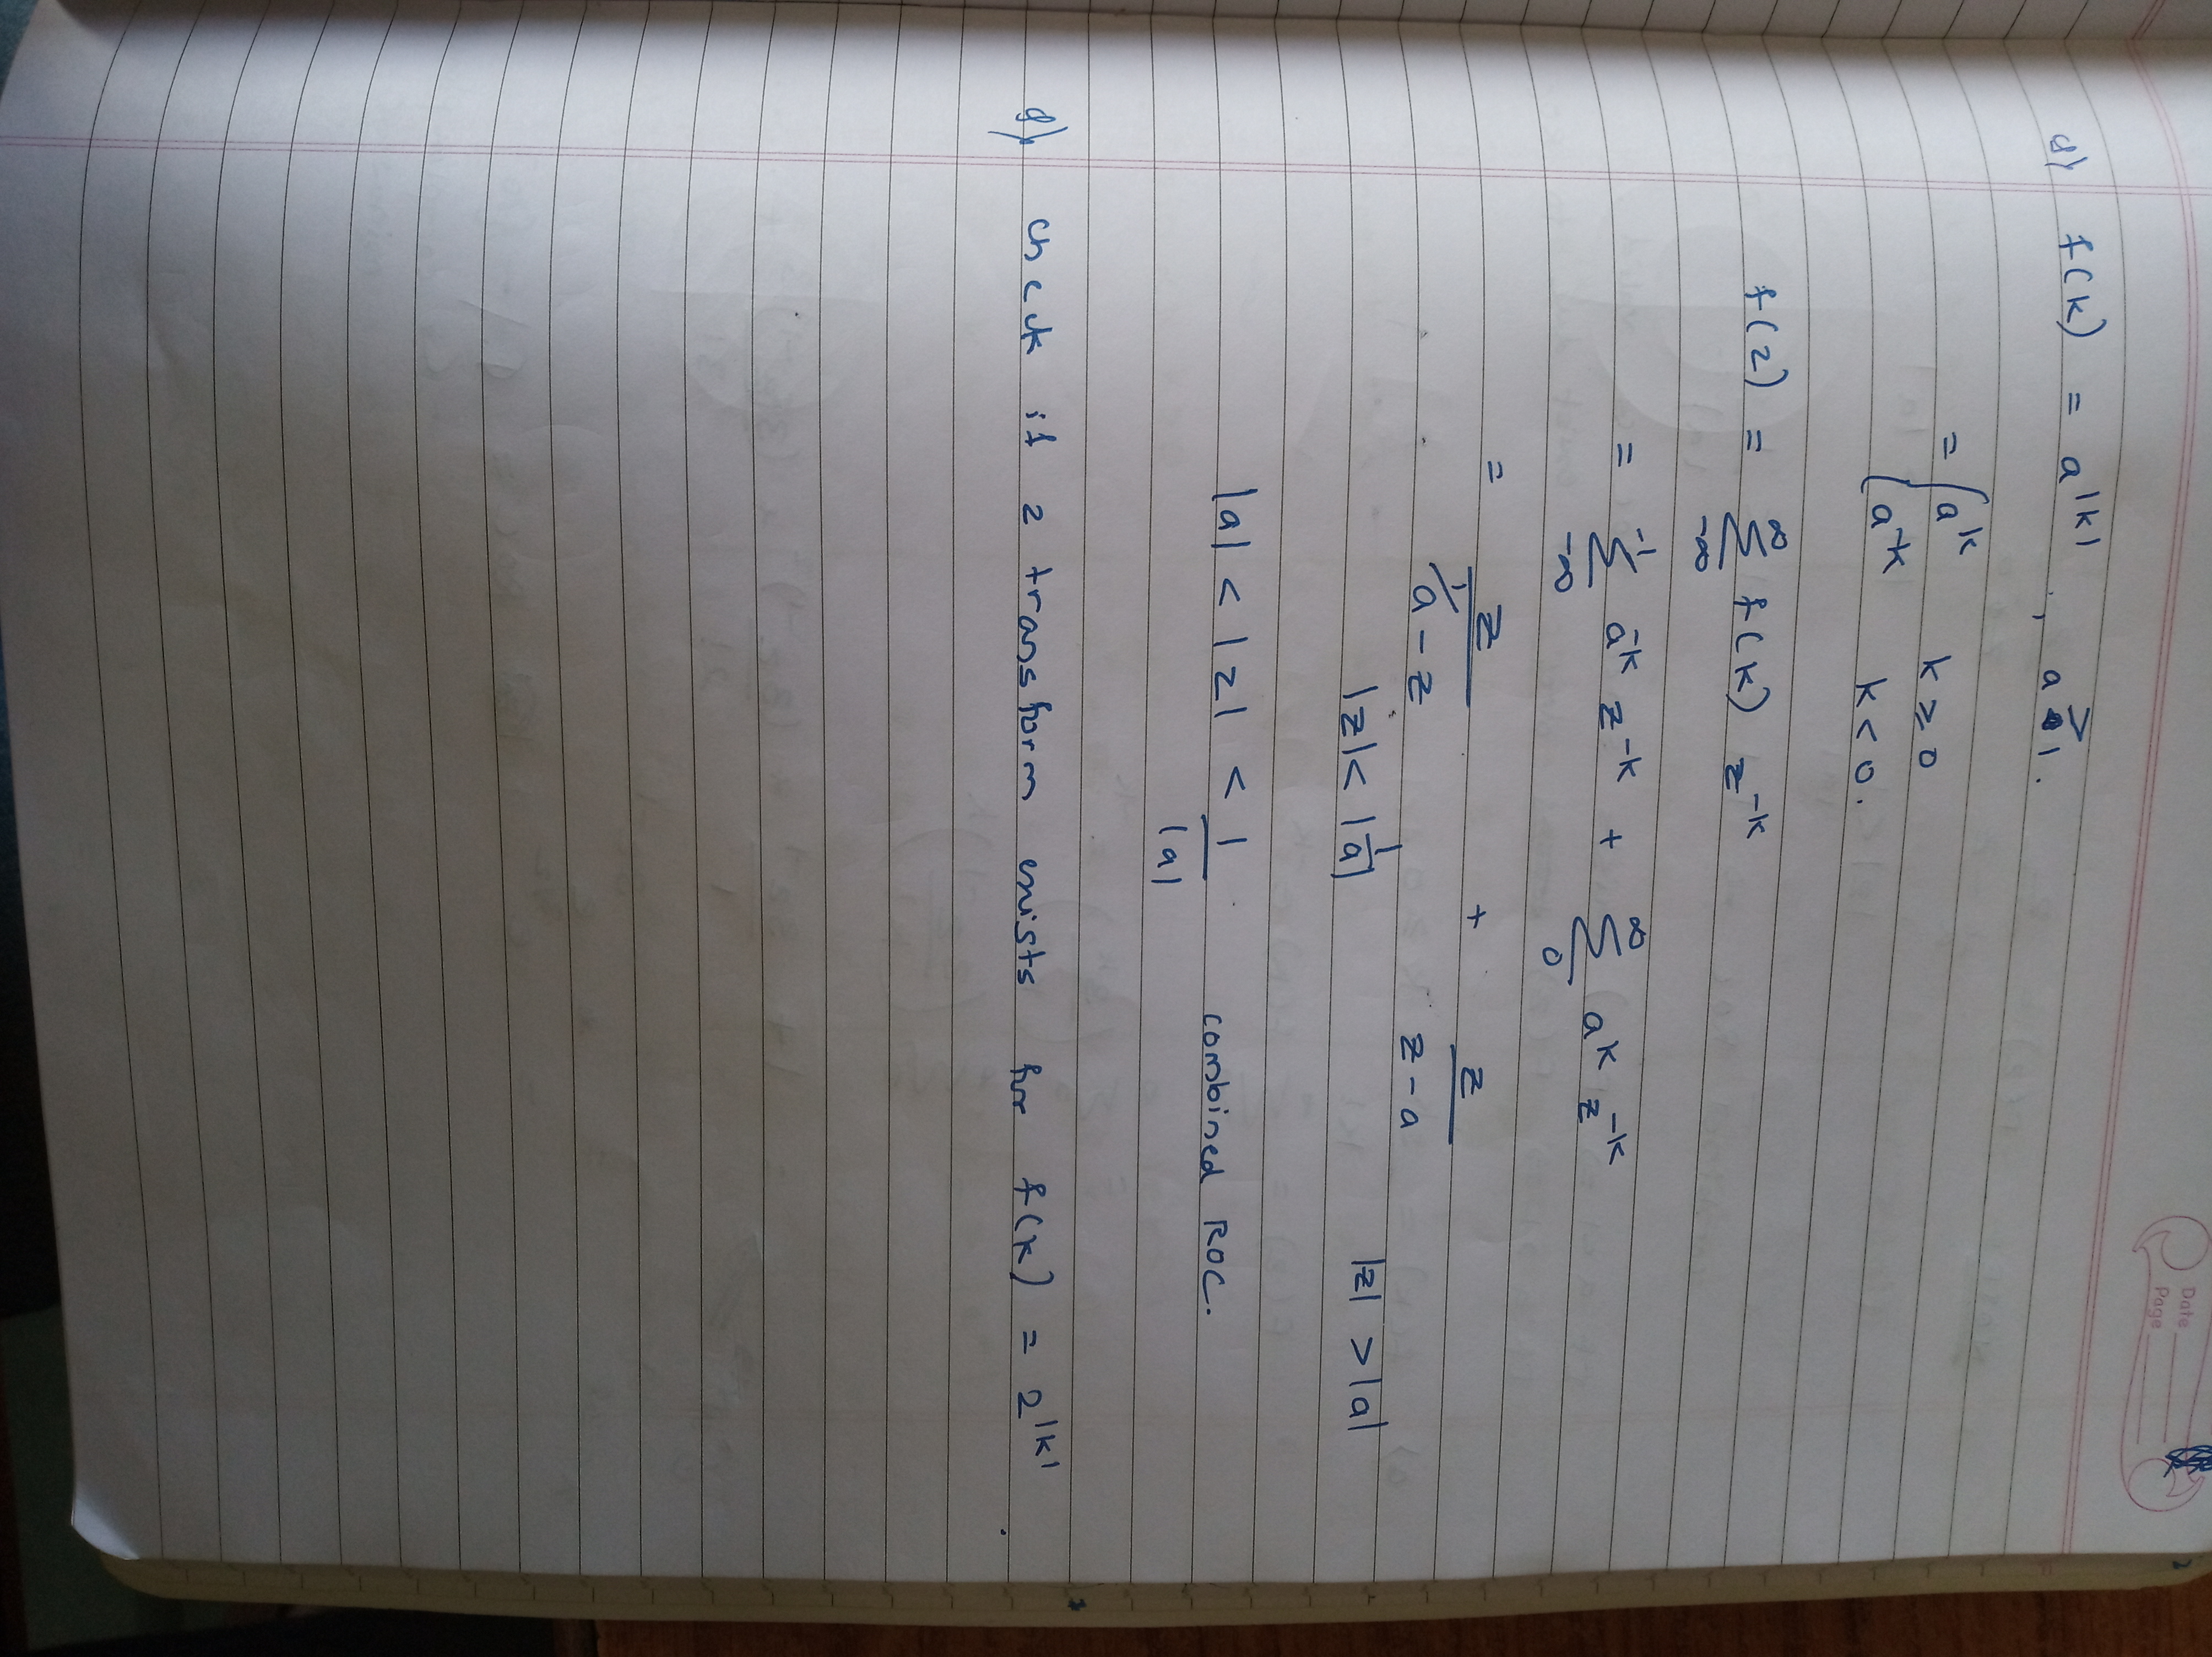 Date
Page
g) f(k) = a^|k| , a > 1.
= { a^k k ≥ 0
a^-k k < 0.
f(z) = ∑_{-∞}^{∞} f(k) z^-k
= ∑_{-∞}^{-1} a^-k z^-k + ∑_{0}^{∞} a^k z^-k
= z/(1/a - z) + z/(z - a)
|z| < |1/a| |z| > |a|
|a| < |z| < 1/|a| combined ROC.
g) check if z transform exists for f(k) = 2^|k| .